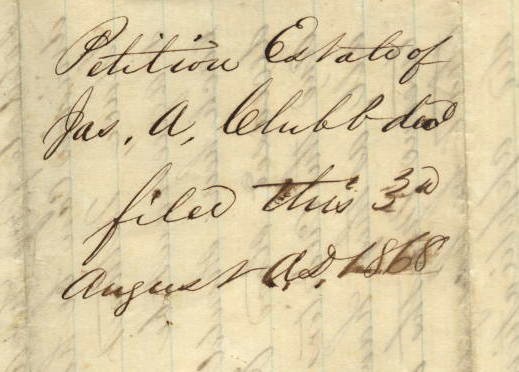 Petition Estate of
Jas. A, Chubb decd
filed this 3d
August A.D, 1868